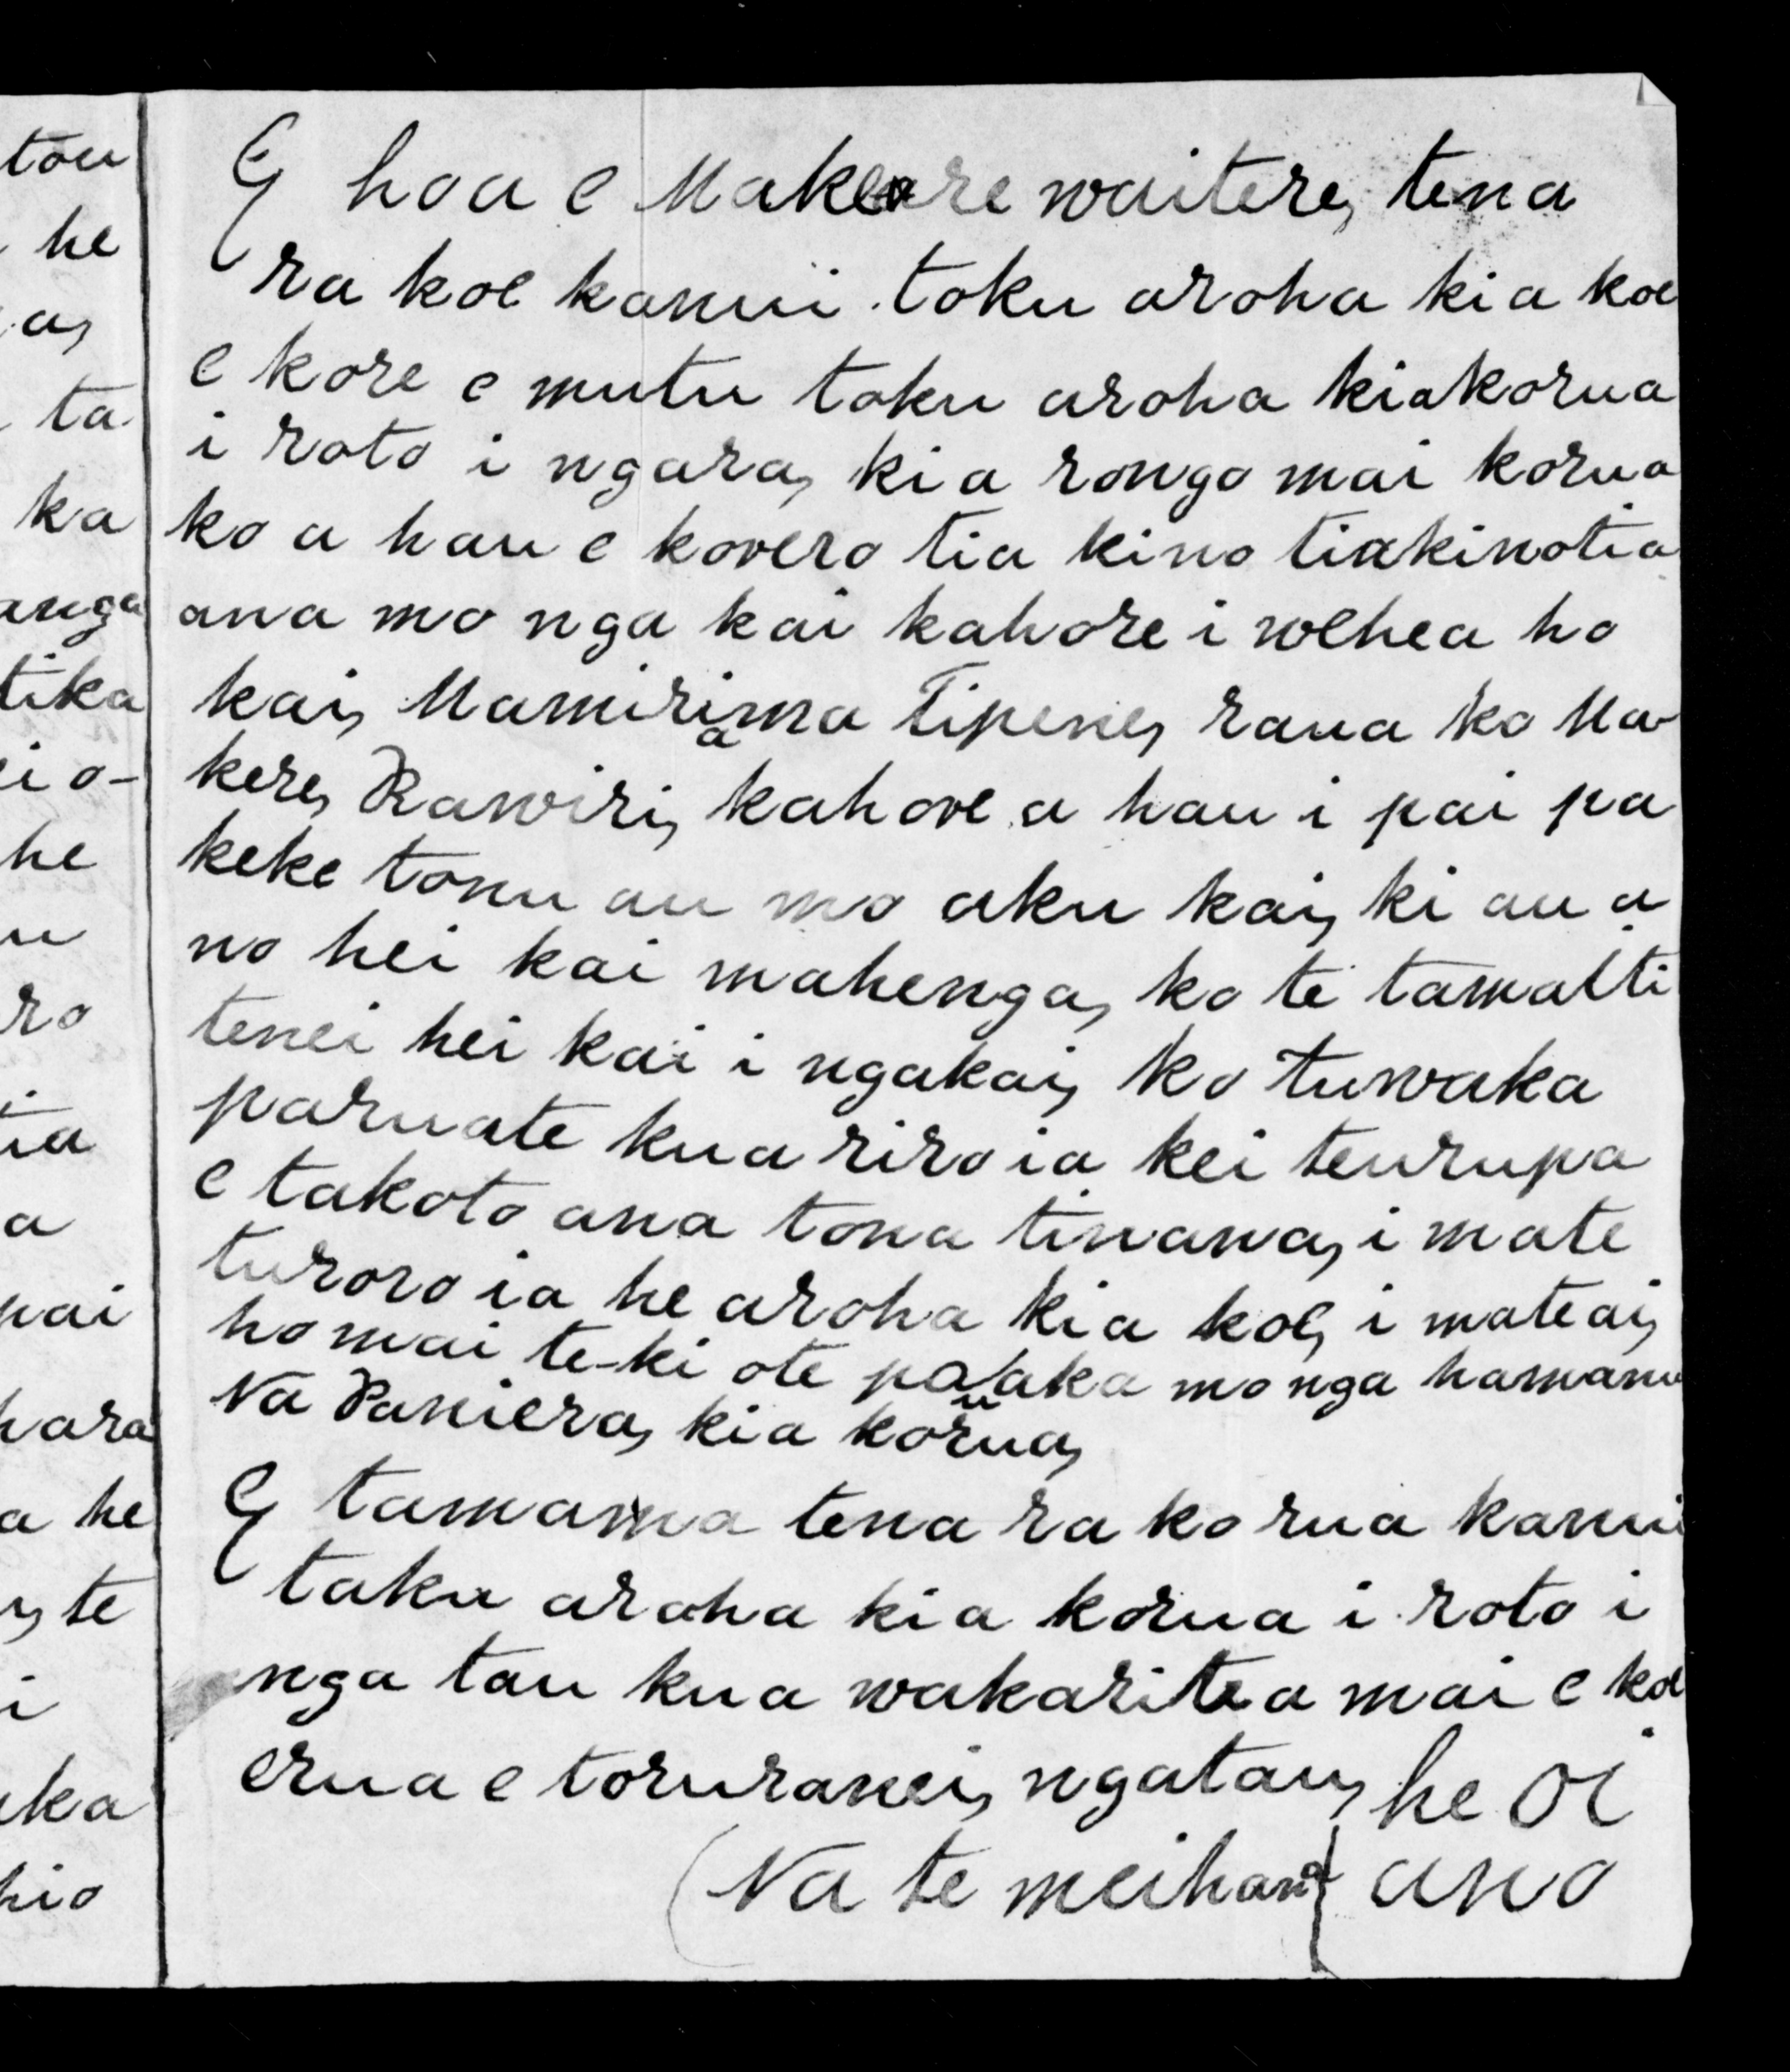 tou
he
a,
ta
ka
anga
tika
ei o-
he
u
ro
ia
a
pai
hara
a he
te
i
uka
hio
E hoa e Makere waitere, tena
ra koe kanui toku aroha kia koe
e kore e mutu toku aroha kiakorua
i roto i ngara, kia rongo mai korua
ko a hau e korero tia kino tiakinotia
ana mo nga kai kahore i wehea ho
kai, Mamirima Tipene, raua ko Ma-
kere, Rawiri, kahore a hau i pai pa
keke tonu au mo aku kai, ki au a
no hei kai mahenga, ko te tamaiti
tenei hei kai i ngakai, ko Tuwaka
paruate kua riro ia kei teurupa
e takoto ana tona tinana, i mate
turoro ia he aroha kia koe, i mateai,
ho mai te-ki ote pauaka mo nga hamanu
Na Paniera, kia korua,
E tamama tena ra ko rua kanui
taku aroha kia korua i roto i
nga tau kua wakaritea mai e koe
erua e toruranei, ngatau, he oi
(Na te meihana} ano